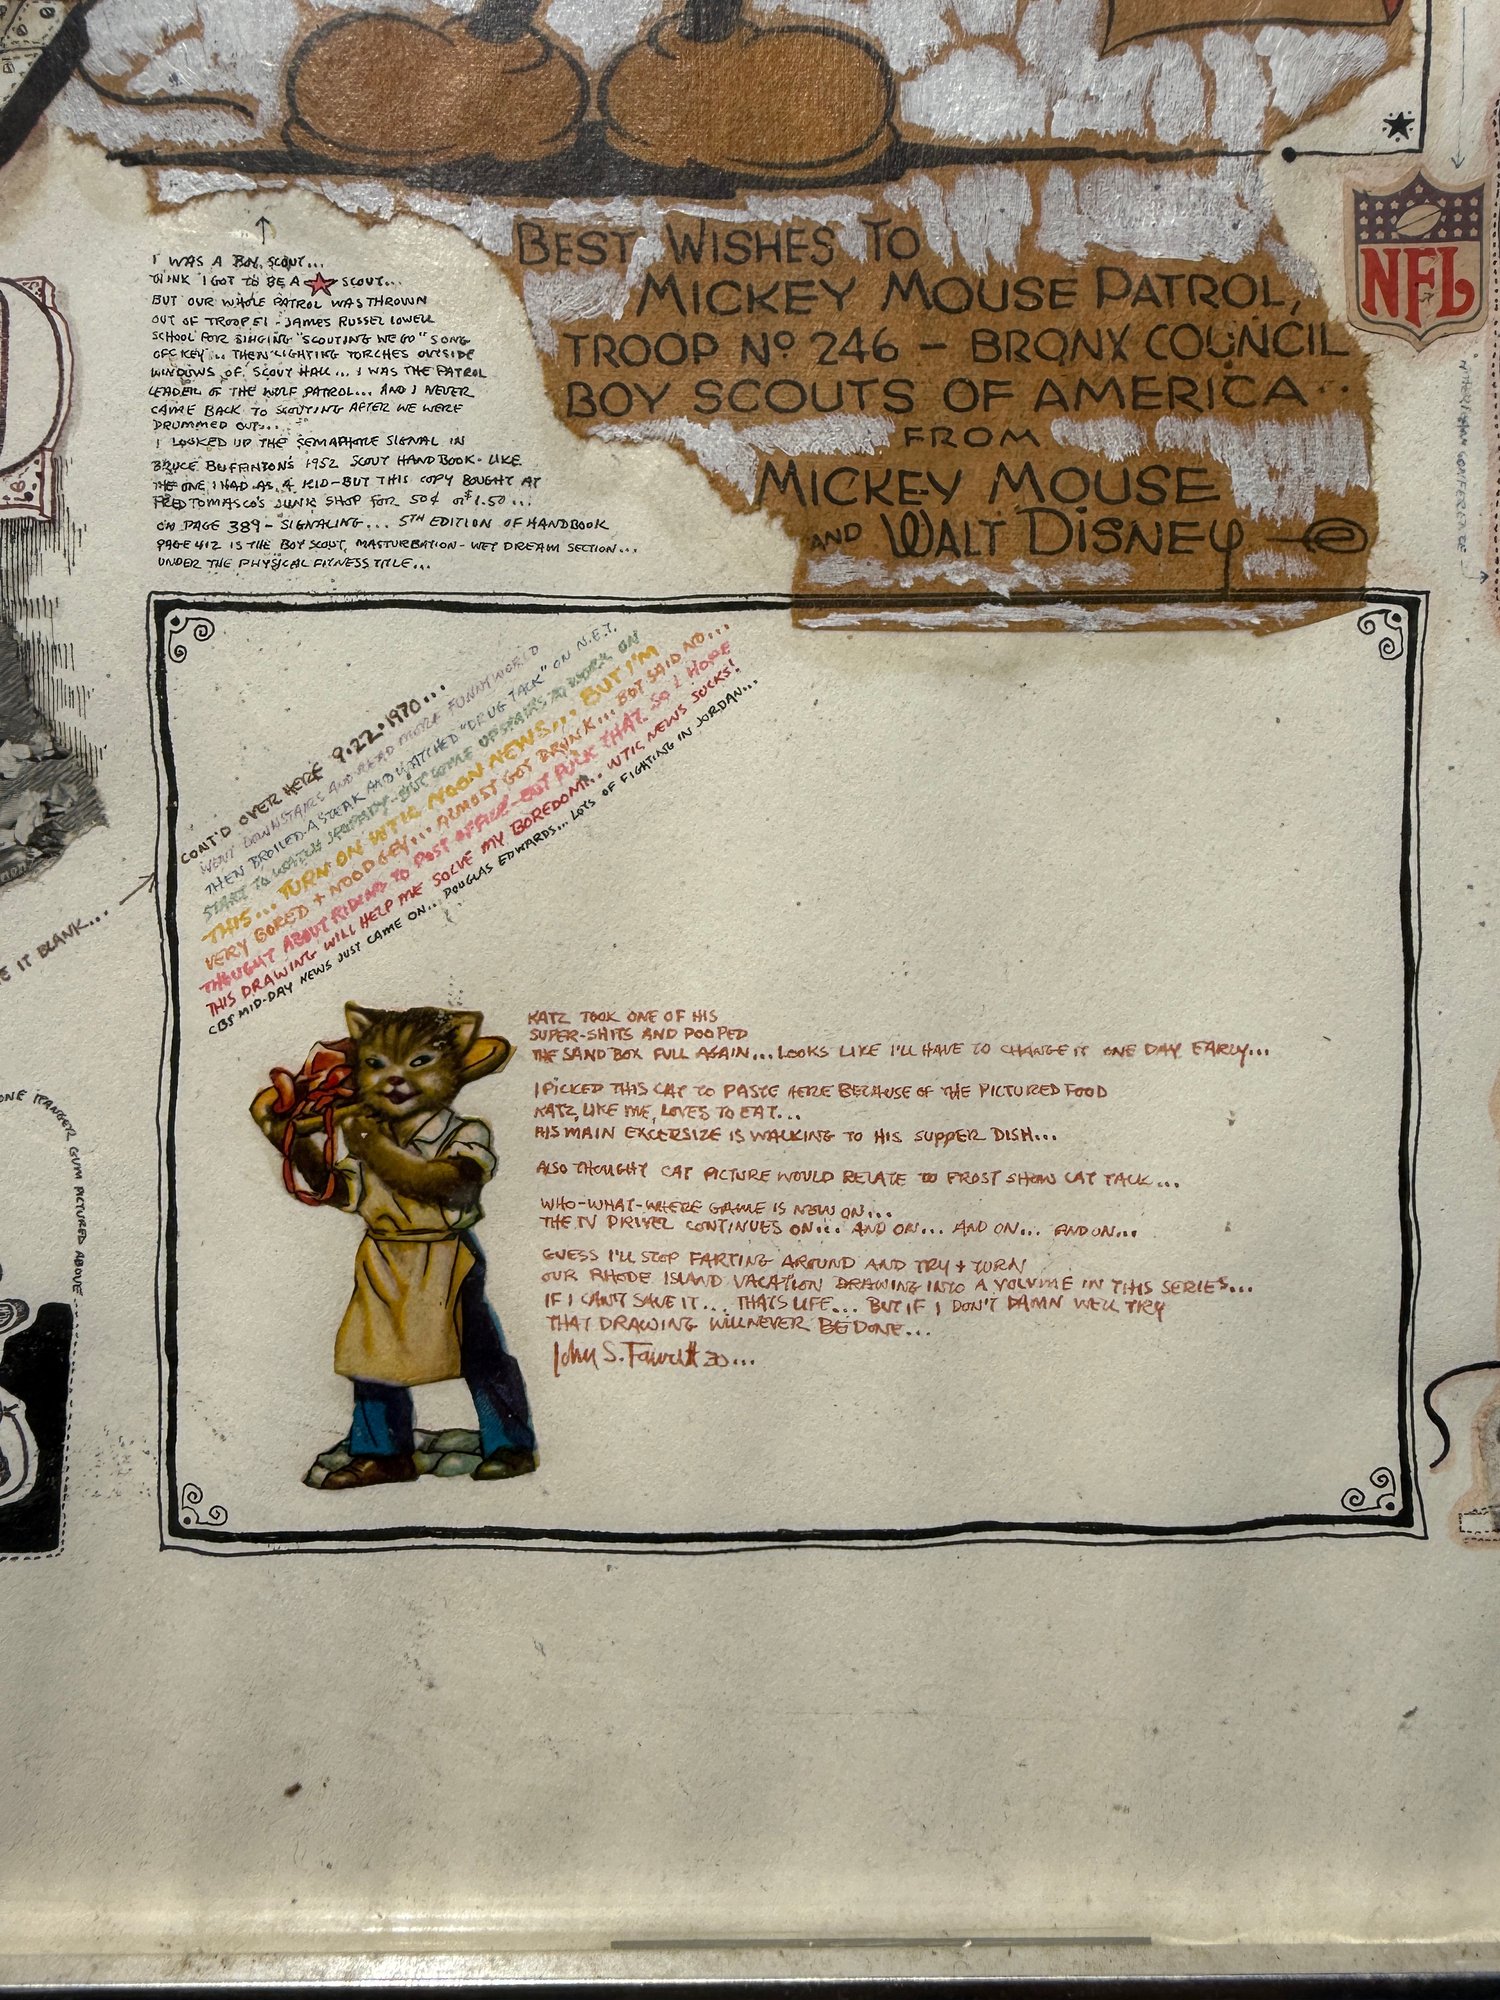 BEST WISHES TO
MICKEY MOUSE PATROL,
TROOP Nº 246 – BRONX COUNCIL
BOY SCOUTS OF AMERICA..
FROM
MICKEY MOUSE
AND WALT DISNEY
NFL
I WAS A BOY SCOUT...
THINK I GOT TO BE A ★ SCOUT...
BUT OUR WHOLE PATROL WAS THROWN
OUT OF TROOP 51 - JAMES RUSSEL LOWELL
SCHOOL FOR SINGING "SCOUTING WE GO" SONG
OFF KEY... THEN LIGHTING TORCHES OUTSIDE
WINDOWS OF SCOUT HALL... I WAS THE PATROL
LEADER OF THE WOLF PATROL... AND I NEVER
CAME BACK TO SCOUTING AFTER WE WERE
DRUMMED OUT...
I LOOKED UP THE SEMAPHORE SIGNAL IN
BRUCE BUFFINTON'S 1952 SCOUT HANDBOOK - LIKE
THE ONE I HAD AS A KID - BUT THIS COPY BOUGHT AT
FRED TOMASCO'S JUNK SHOP FOR 50¢ or $1.50...
ON PAGE 389 - SIGNALING... 5TH EDITION OF HANDBOOK
PAGE 412 IS THE BOY SCOUT, MASTURBATION - WET DREAM SECTION...
UNDER THE PHYSICAL FITNESS TITLE...
CONT'D OVER HERE 9.22.1970...
WENT DOWNSTAIRS AND READ MORE FUNNYWORLD
THEN BROILED A STEAK AND WATCHED "DRUG TALK" ON N.E.T.
START TO WATCH JEOPARDY - BUT COME UPSTAIRS TO WORK ON
THIS... TURN ON WTIC NOON NEWS... BUT I'M
VERY BORED + NOODGEY... ALMOST GOT DRUNK... BUT SAID NO...
THOUGHT ABOUT RIDING TO POST OFFICE - BUT FUCK THAT. SO I HOPE
THIS DRAWING WILL HELP ME SOLVE MY BOREDOM... WTIC NEWS SUCKS!
CBS MID-DAY NEWS JUST CAME ON... DOUGLAS EDWARDS... LOTS OF FIGHTING IN JORDAN...
IT BLANK...
GUM PICTURED ABOVE
KATZ TOOK ONE OF HIS
SUPER-SHITS AND POOPED
THE SAND BOX FULL AGAIN... LOOKS LIKE I'LL HAVE TO CHANGE IT ONE DAY EARLY...
I PICKED THIS CAT TO PASTE HERE BECAUSE OF THE PICTURED FOOD
KATZ, LIKE ME, LOVES TO EAT...
HIS MAIN EXCERSIZE IS WALKING TO HIS SUPPER DISH...
ALSO THOUGHT CAT PICTURE WOULD RELATE TO FROST SHOW CAT TALK...
WHO-WHAT-WHERE GAME IS NOW ON...
THE TV DRIVEL CONTINUES ON... AND ON... AND ON... AND ON...
GUESS I'LL STOP FARTING AROUND AND TRY + TURN
OUR RHODE ISLAND VACATION DRAWING INTO A VOLUME IN THIS SERIES...
IF I CAN'T SAVE IT... THATS LIFE... BUT IF I DON'T DAMN WELL TRY
THAT DRAWING WILL NEVER BE DONE...
John S. Fawcett 30...